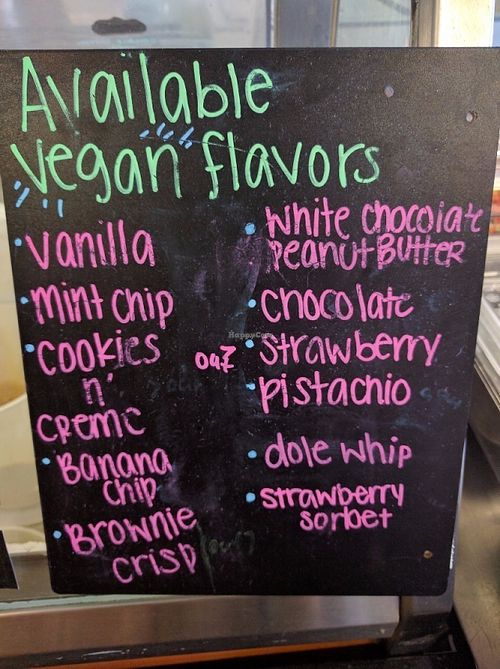 Available
vegan flavors
vanilla
mint chip
cookies
n'
creme
Banana
chip
Brownie
crisp
white chocolate
peanut Butter
chocolate
strawberry
pistachio
dole whip
strawberry
sorbet
HappyCow